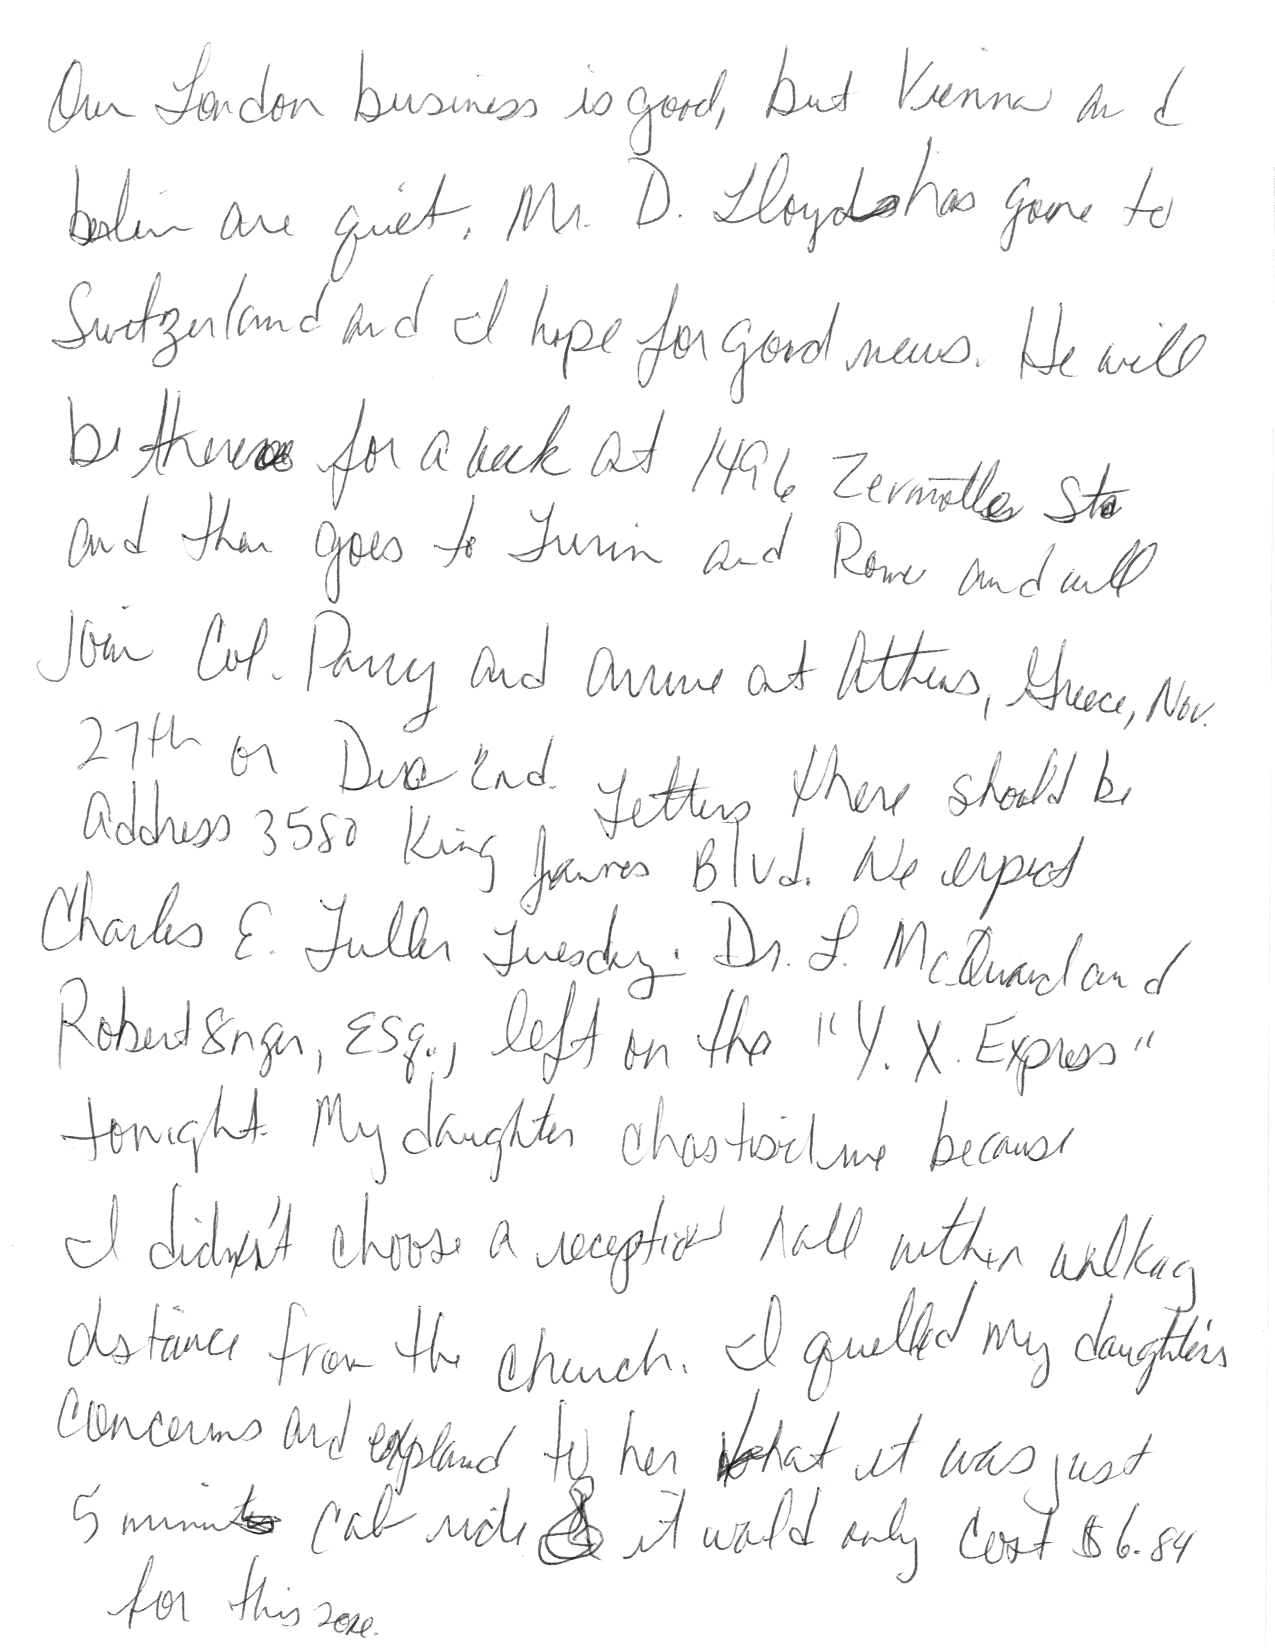 Our London business is good, but Vienna and
berlin are quiet. Mr. D. Lloyd has gone to
Switzerland and I hope for good news. He will
be there for a week at 1496 Zermott St
and then goes to Turin and Rome and will
join Col. Parry and arrive at Athens, Greece, Nov.
27th or Dec 2nd. Letters there should be
address 3580 King James Blvd. We expect
Charles E. Fuller Tuesday. Dr. L. McQuard and
Robert Unger, ESq., left on the "Y. X. Express"
tonight. My daughter chastised me because
I didn't choose a reception hall within walking
distance from the church. I quelled my daughters
concerns and explaind to her that it was just
5 minute cab ride & it would only cost $6.84
for this zone.